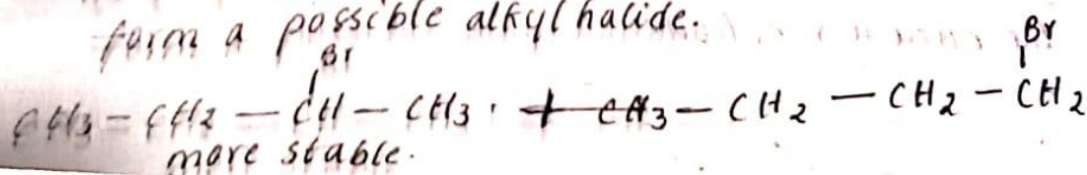 form a possible alkyl halide.
Br Br
CH3 - CH2 - CH - CH3 . + CH3 - CH2 - CH2 - CH2
more stable.